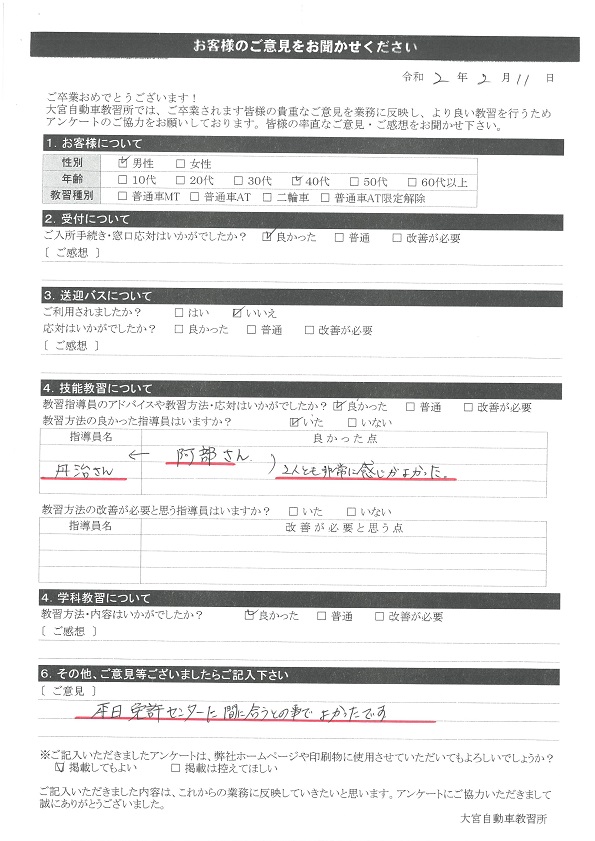 お客様のご意見をお聞かせください
令和 2 年 2 月 11 日
ご卒業おめでとうございます！
大宮自動車教習所では、ご卒業されます皆様の貴重なご意見を業務に反映し、より良い教習を行うため
アンケートのご協力をお願いしております。皆様の率直なご意見・ご感想をお聞かせ下さい。
1. お客様について
性別 ☑男性 □女性
年齢 □10代 □20代 □30代 ☑40代 □50代 □60代以上
教習種別 □普通車MT □普通車AT □二輪車 □普通車AT限定解除
2. 受付について
ご入所手続き・窓口応対はいかがでしたか？ ☑良かった □普通 □改善が必要
［ ご感想 ］
3. 送迎バスについて
ご利用されましたか？ □はい ☑いいえ
応対はいかがでしたか？ □良かった □普通 □改善が必要
［ ご感想 ］
4. 技能教習について
教習指導員のアドバイスや教習方法・応対はいかがでしたか？ ☑良かった □普通 □改善が必要
教習方法の良かった指導員はいますか？ ☑いた □いない
指導員名 良かった点
← 阿部さん
丹治さん ) 2人とも非常に感じがよかった。
教習方法の改善が必要と思う指導員はいますか？ □いた □いない
指導員名 改善が必要と思う点
4. 学科教習について
教習方法・内容はいかがでしたか？ ☑良かった □普通 □改善が必要
［ ご感想 ］
6. その他、ご意見等ございましたらご記入下さい
［ ご意見 ］
本日免許センターに間に合うとの事でよかったです
※ご記入いただきましたアンケートは、弊社ホームページや印刷物に使用させていただいてもよろしいでしょうか？
☑掲載してもよい □掲載は控えてほしい
ご記入いただきました内容は、これからの業務に反映していきたいと思います。アンケートにご協力いただきまして
誠にありがとうございました。
大宮自動車教習所